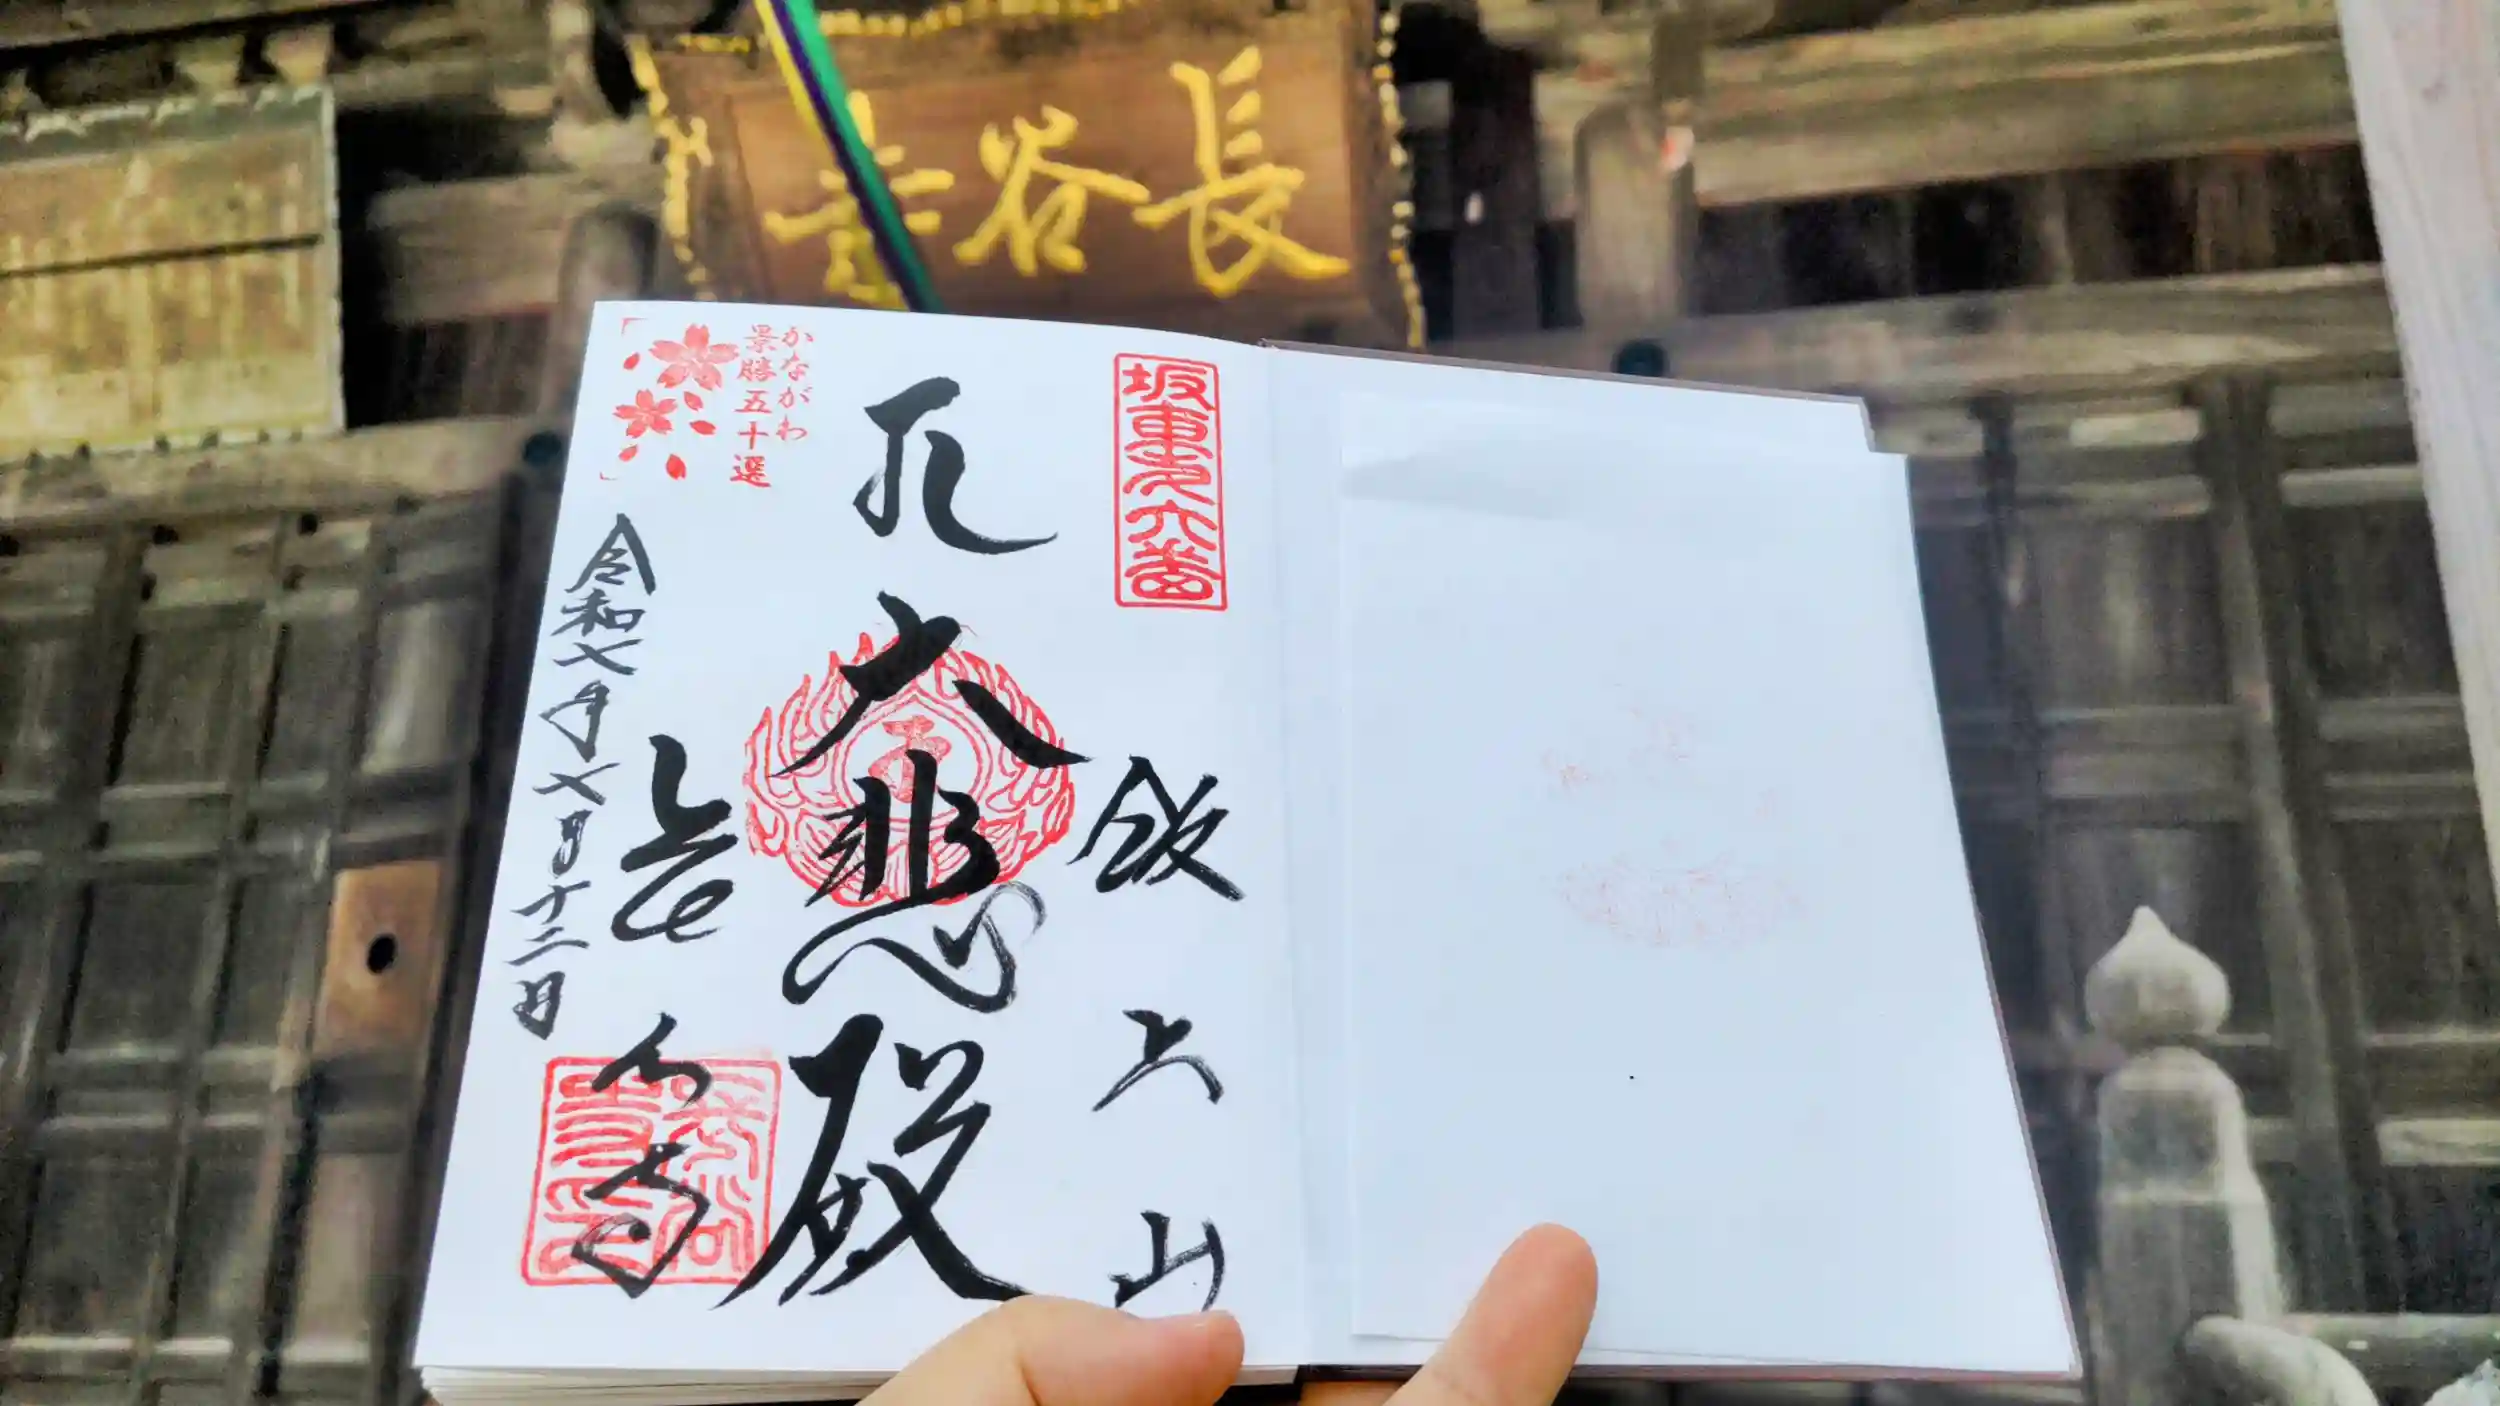 長谷寺
坂東第六番
飯上山
大悲殿
長谷寺
かながわ
景勝五十選
令和七年七月十二日